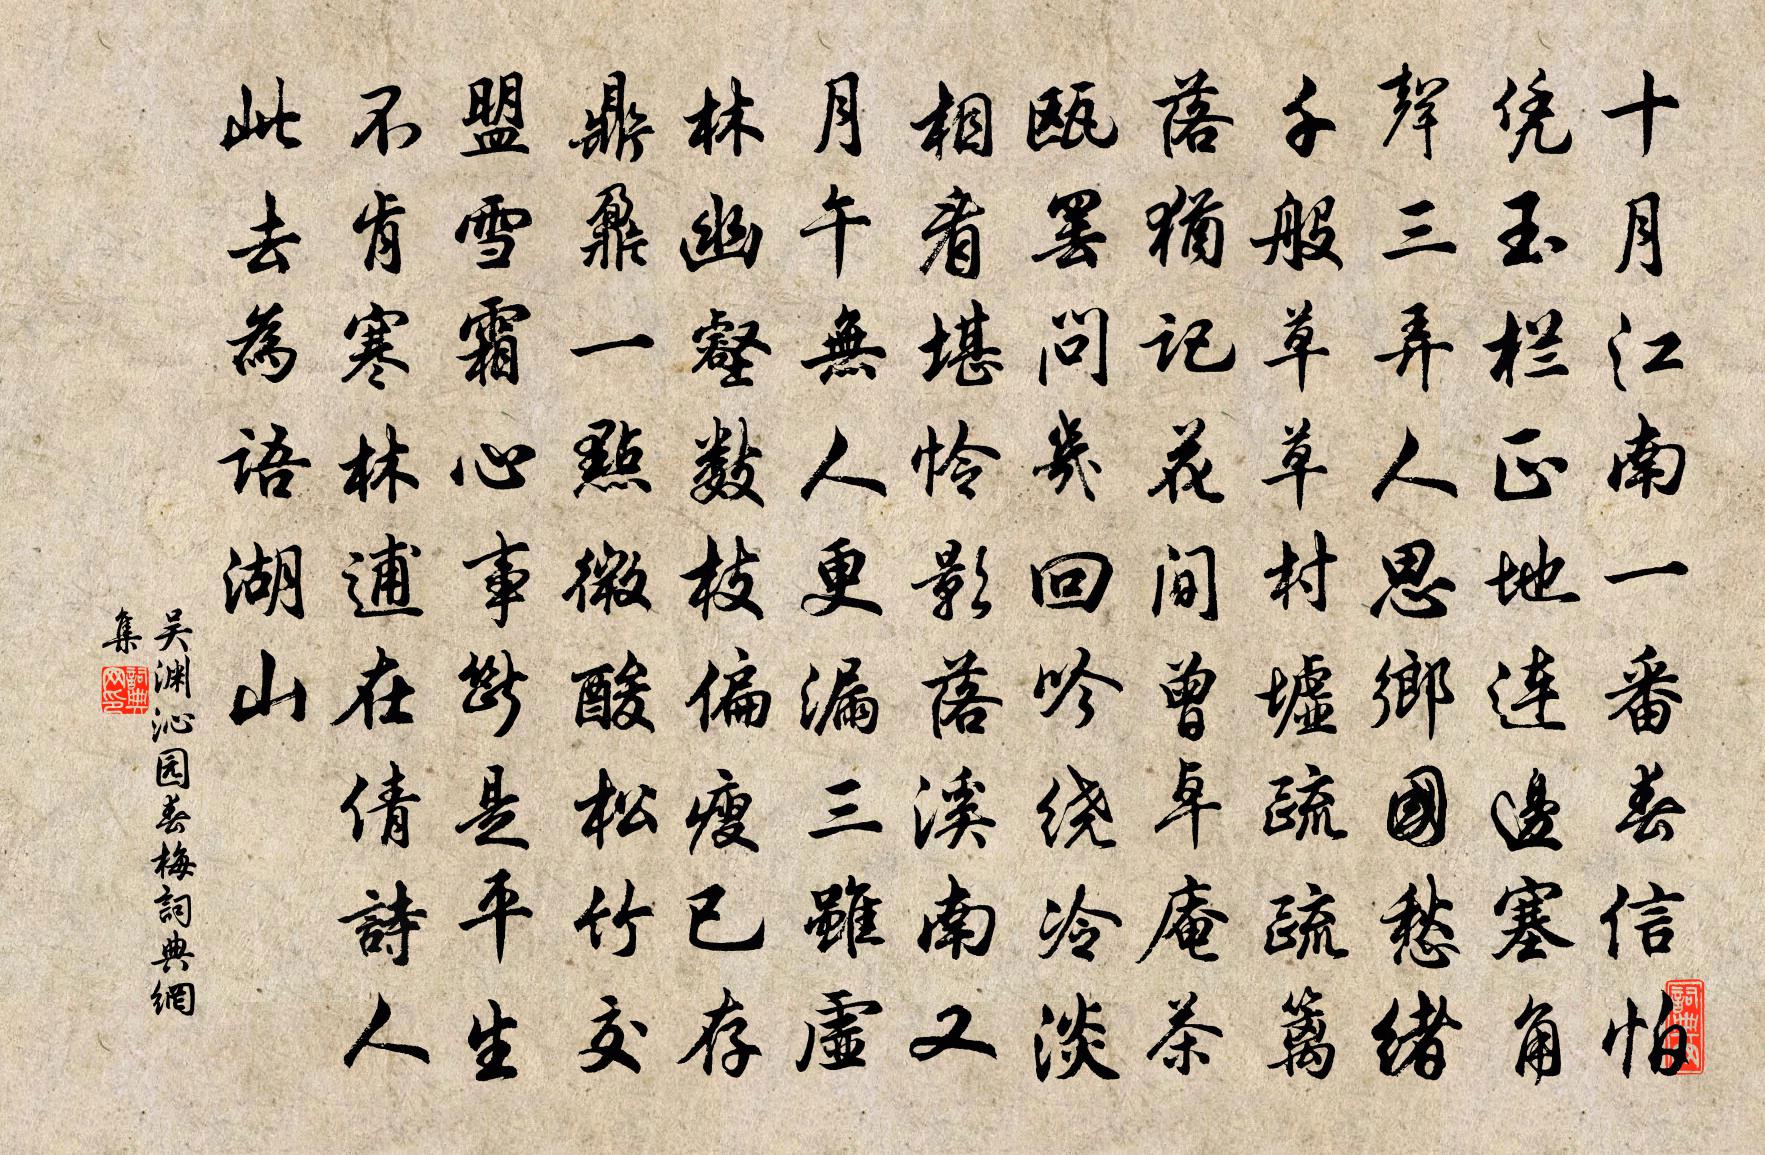 十月江南一番春信怕
凭玉栏正地連邊塞角
聲三弄人思鄉國愁緒
千般草草村墟疏疏篱
落猶記花间曾卓庵茶
瓯罢问幾回吟绕冷淡
相看堪怜影落溪南又
月午無人更漏三雖虛
林幽壑數枝偏瘦已存
鼎鼐一點微酸松竹交
盟雪霜心事斷是平生
不肯寒林逋在倩詩人
此去為語湖山
吴渊沁园春梅詞典網
集
詞典网印